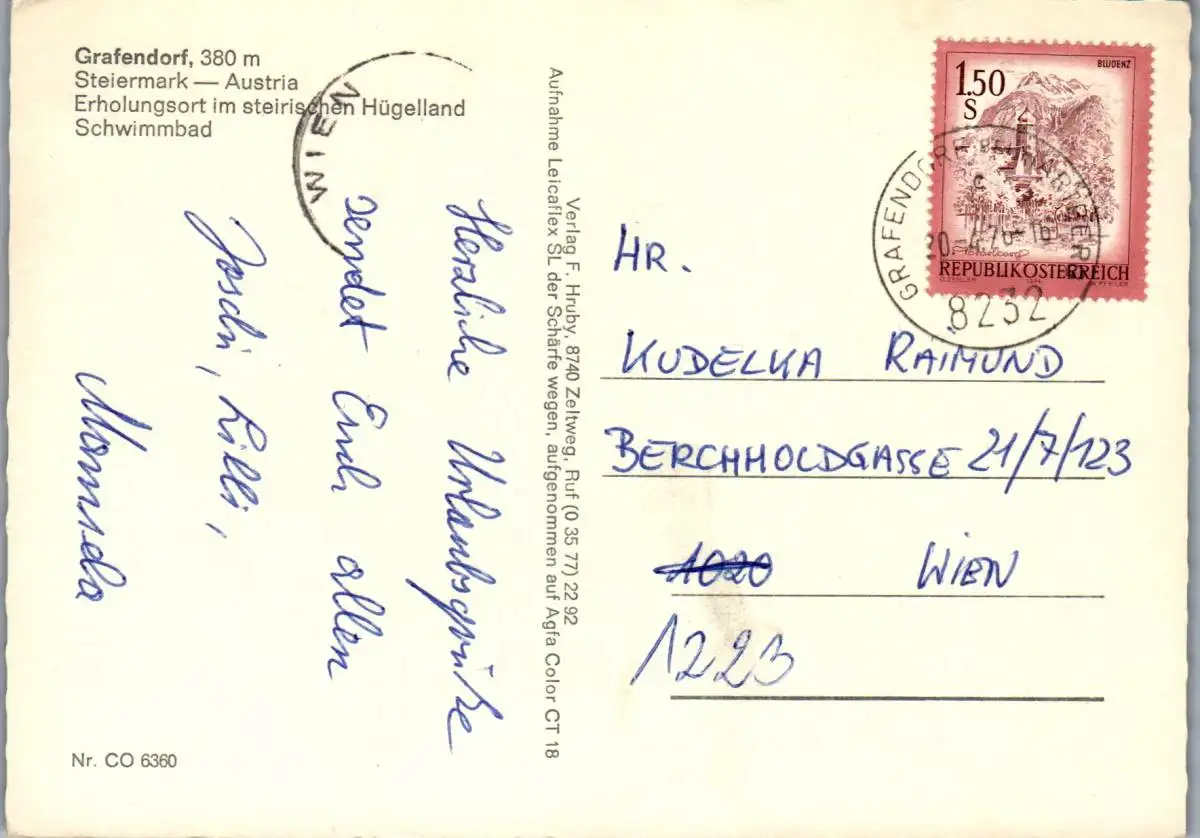 Grafendorf, 380 m
Steiermark — Austria
Erholungsort im steirischen Hügelland
Schwimmbad
WIEN
Herzliche Urlaubsgrüße
sendet Euch allen
Joschi, Lilli,
Verlag F. Hruby, 8740 Zeltweg, Ruf (0 35 77) 22 92
Aufnahme Leicaflex SL der Schärfe wegen, aufgenommen auf Agfa Color CT 18
BLUDENZ
1.50
S
REPUBLIK ÖSTERREICH
GRAFENDORF BEI HARTBERG
8232
HR.
KUDELKA RAIMUND
BERCHHOLDGASSE 21/7/123
1020 WIEN
1223
Nr. CO 6360